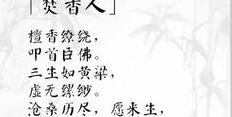 「焚香人」
檀香缭绕，
叩首巨佛。
三生如黄粱，
虚无缥缈。
沧桑历尽，愿来生，